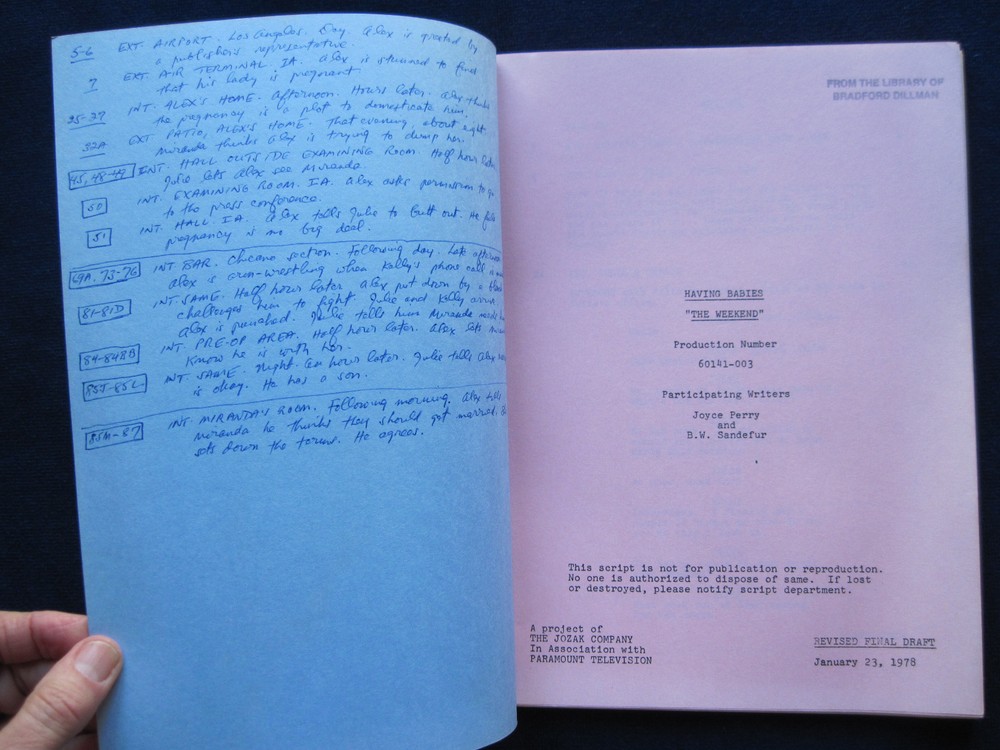 5-6 EXT. AIRPORT. Los Angeles. Day. Alex is greeted by
a publisher's representative.
7 EXT. AIR TERMINAL. IA. Alex is stunned to find
that his lady is pregnant.
25-27 INT. ALEX'S HOME. Afternoon. Hours later. Alex thinks
the pregnancy is a plot to domesticate him.
32A EXT PATIO, ALEX'S HOME. That evening, about eight.
Miranda thinks Alex is trying to dump her.
45, 48-49 INT. HALL OUTSIDE EXAMINING ROOM. Half hour later.
Julie lets Alex see Miranda.
50 INT. EXAMINING ROOM. IA. Alex asks permission to go
to the press conference.
51 INT. HALL IA. Alex tells Julie to butt out. He feels
pregnancy is no big deal.
69A, 73-76 INT. BAR. Chicano section. Following day. Late afternoon
Alex is arm-wrestling when Kelly's phone call
81-81D INT. SAME. Half hour later Alex put down by a
challenges him to fight. Julie and Kelly arrive
Alex is punched. Julie tells him Miranda needs
84-84B INT. PRE-OP AREA. Half hour later. Alex lets
know he is with her.
85J-85L INT. SAME. Night. An hour later. Julie tells Alex
is okay. He has a son.
85M-87 INT. MIRANDA'S ROOM. Following morning. Alex tells
Miranda he thinks they should get married.
sets down the terms. He agrees.
FROM THE LIBRARY OF
BRADFORD DILLMAN
HAVING BABIES
"THE WEEKEND"
Production Number
60141-003
Participating Writers
Joyce Perry
and
B.W. Sandefur
This script is not for publication or reproduction.
No one is authorized to dispose of same. If lost
or destroyed, please notify script department.
A project of
THE JOZAK COMPANY
In Association with
PARAMOUNT TELEVISION
REVISED FINAL DRAFT
January 23, 1978